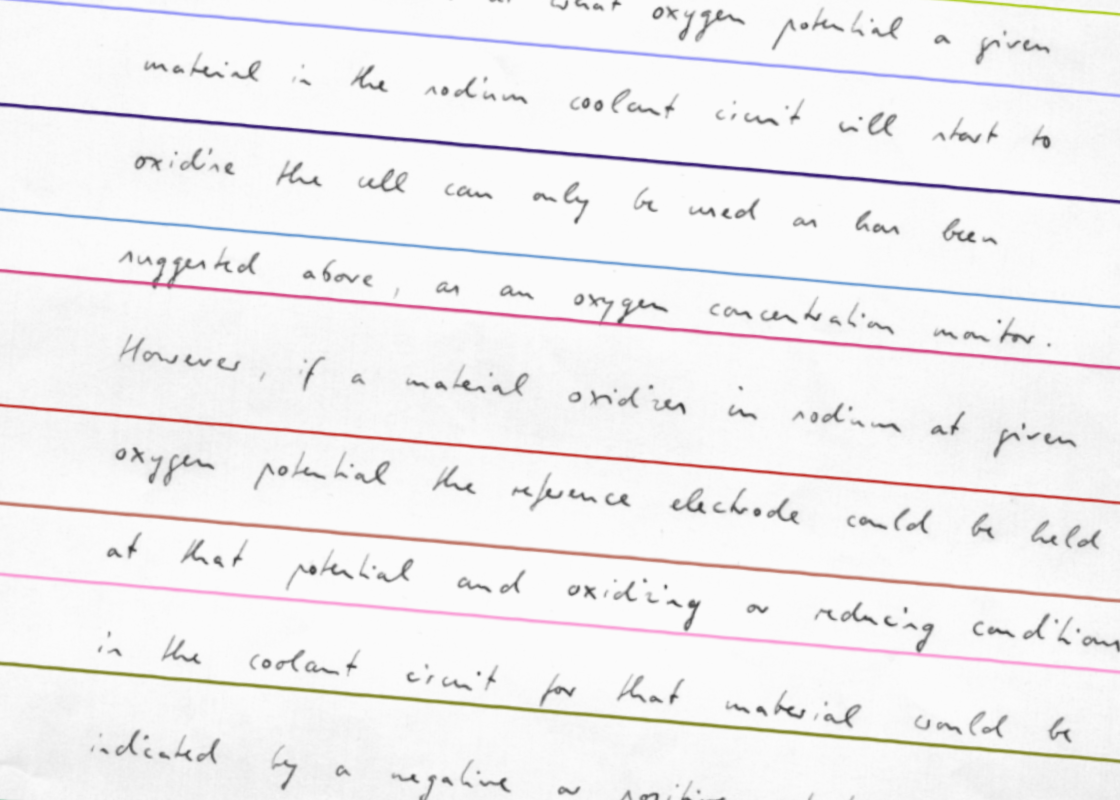 what oxygen potential a given
material in the sodium coolant circuit will start to
oxidise the cell can only be used as has been
suggested above, as an oxygen concentration monitor.
However, if a material oxidizes in sodium at given
oxygen potential the reference electrode could be held
at that potential and oxidizing or reducing condition
in the coolant circuit for that material would be
indicated by a negative or positive